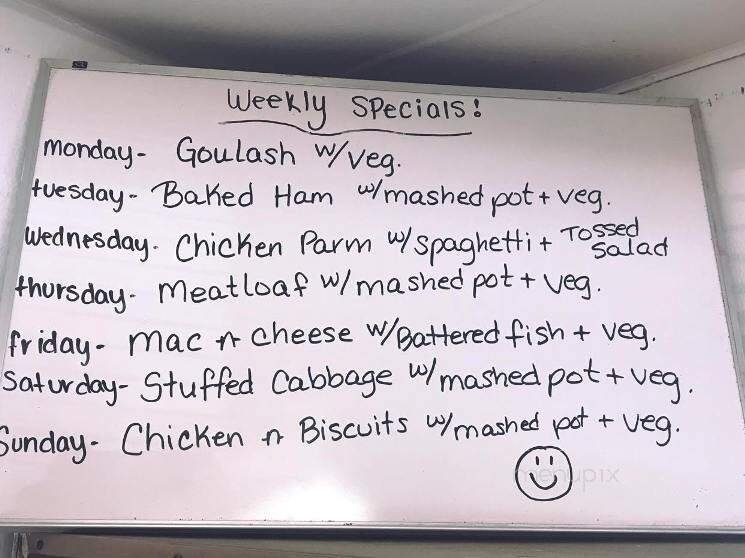 Weekly Specials!
monday- Goulash w/veg.
tuesday- Baked Ham w/mashed pot + veg.
Wednesday- Chicken Parm w/spaghetti + Tossed Salad
thursday- meatloaf w/mashed pot + veg.
friday- mac n cheese w/Battered fish + veg.
Saturday- Stuffed Cabbage w/mashed pot + veg.
Sunday- Chicken n Biscuits w/mashed pot + veg.
menupix